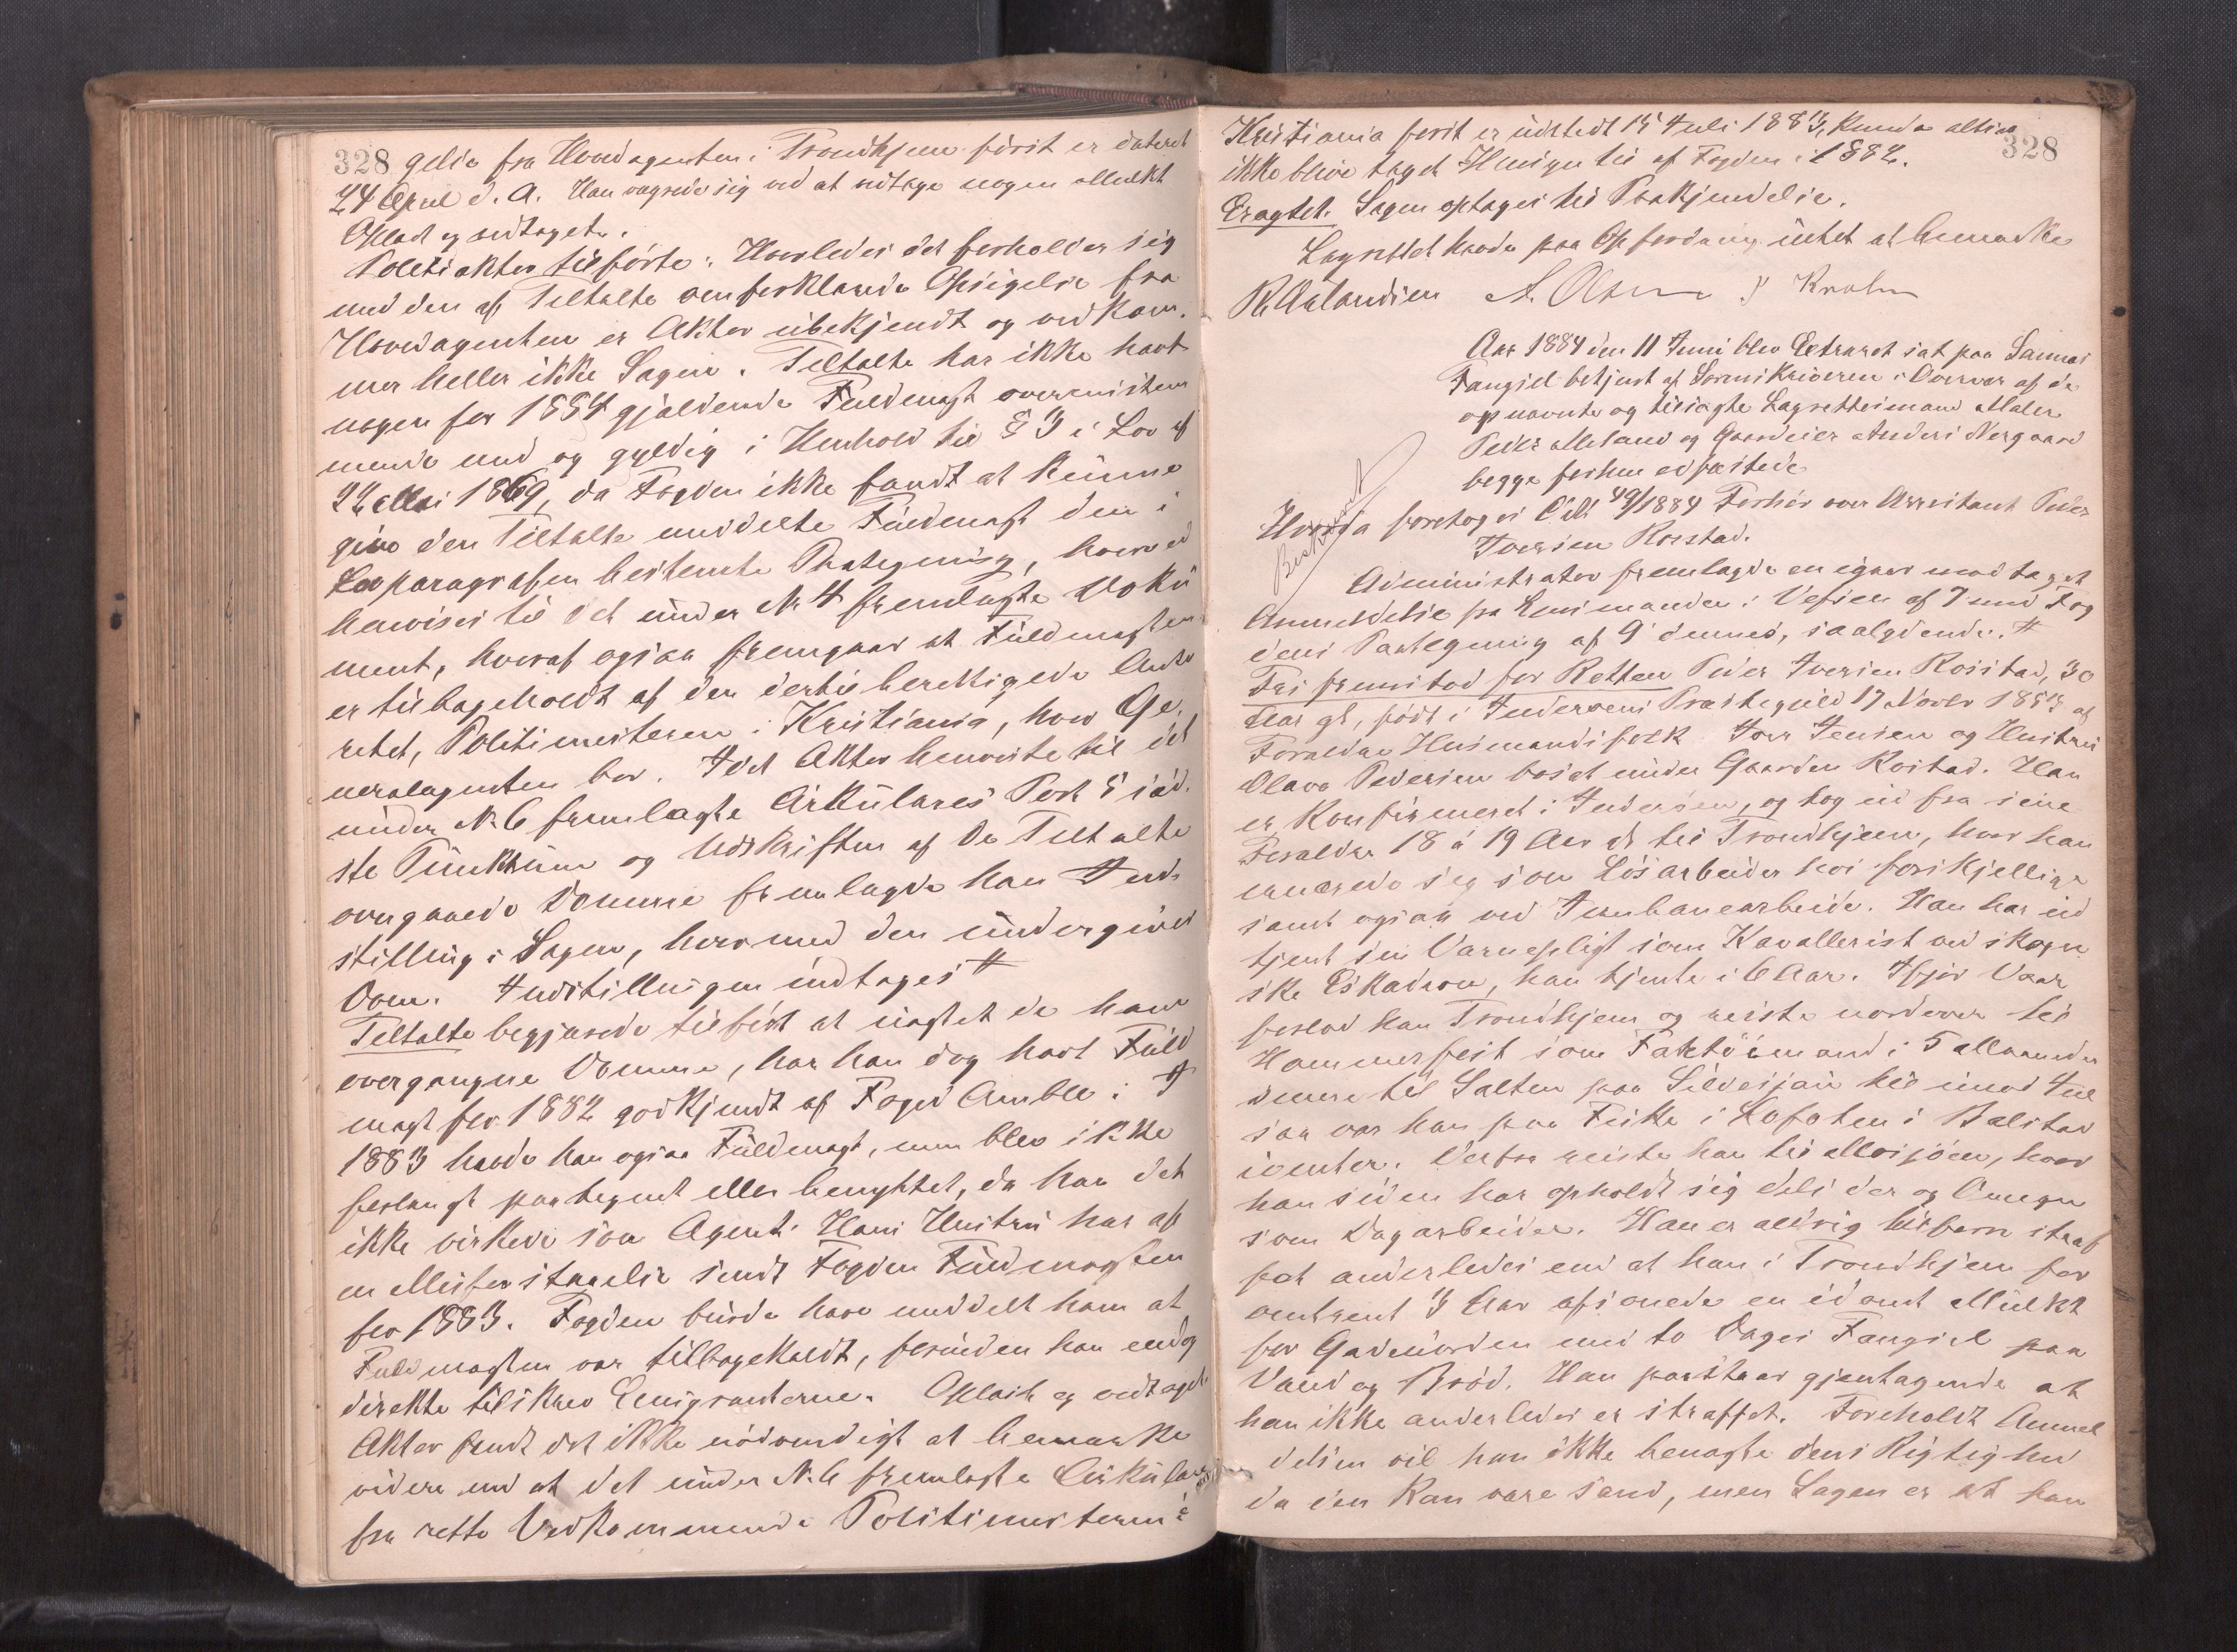 328 gelse fra Hovedagenten i Trondhjem først er dateret
24 April d. A. Han vægrede sig ved at vedtage nogen Mulkt
Oplæst og vedtaget.
Politiaktor tilførte: Hvorledes det forholder sig
med den af Tiltalte omforklarede Opsigelse fra
Hovedagenten er Aktor ubekjendt og vedkom-
mer heller ikke Sagen. Tiltalte har ikke havt
nogen for 1884 gjældende Fuldmagt overensstem
mende med og gyldig i Henhold til § 3 i Lov af
22 Mai 1869, da Fogden ikke fandt at kunne
give den Tiltalte meddelte Fuldmagt den i
Lovparagrafen bestemte Paategning, hvorved
henvises til det under No 4 fremlagte Doku
ment, hvoraf ogsaa fremgaar at Fuldmagten
er tilbageholdt af den dertil berettigede Auto
ritet, Politimesteren i Kristiania, hvor Ge-
neralagenten bor. Idet Aktor henviste til det
under No 6 fremlagte Cirkulæres Post 5 sid-
ste Punktum og Udskriften af de Tiltalte
overgaaede Domme fremlagde han Ind-
stilling i Sagen, hvormed den undergives
Dom. Indstillingen indtages #
Tiltalte begjærede tilført at uagtet de ham
overgangne Domme, har han dog havt Fuld
magt for 1882 godkjendt af Foged Amble. I
1883 havde han ogsaa Fuldmagt, men blev ikke
forlangt paategnet eller benyttet, da han det
ikke virkede som Agent. Hans Hustru har af
en Misforstaaelse sendt Fogden Fuldmagten
for 1883. Fogden burde have meddelt ham at
Fuldmagten var tilbagekaldt, foruden han endog
direkte tilskrev Emigranterne. Oplæst og vedtaget.
Aktor fandt det ikke nødvendigt at bemærke
videre end at det under No 6 fremlagte Cirkulære
fra rette Vedkommende Politimesteren i
328
Kristiania først er udstedt 15 Juli 1883, kunde altsaa
ikke blive taget Hensyn til af Fogden i 1882.
Eragtet. Sagen optages til Paakjendelse.
Lagrettet havde paa Opfordring intet at bemærke
A. Olsen P Krohn
Aar 1884 den 11 Juni blev Extraret sat paa Sannas
Fængsel betjent af Sorenskriveren i Overvær af de
opnævnte og tilsagte Lagrettesmænd Maler
Peder Meland og Gaardeier Anders Nergaard
begge forhen edfæstede
Hvorda foretoges Clt 49/1884 Forhør over Arrestant Peder
Beskrevet
Iversen Rostad.
Administrator fremlagde en igaar modtaget
Anmeldelse fra Lensmanden i Vefsen af 7 med Fog
dens Paategning af 9 dennes, saalydende. #
Fri fremstod for Retten Peder Iversen Rostad, 30
Aar gl, født i Inderøens Præstegjeld 17 Novbr 1853 af
Forældre Husmandsfolk Iver Jensen og Hustru
Olava Pedersen bosat under Gaarden Rostad. Han
er konfirmeret i Inderøen, og tog ud fra sine
Forældre 18 á 19 Aar gl til Trondhjem, hvor han
ernærede sig som Løsarbeider hos forskjellige
samt ogsaa ved Jernbanearbeide. Han har ud
tjent sin Værnepligt som Kavallerist ved skogn
ske Eskadron, han tjente i 6 Aar. Ifjor Vaar
forlod han Trondhjem og reiste nordover til
Hammerfest som Faktøimand i 5 Maaneder
senere til Salten paa Sildesjau til imod Jul
saa var han paa Fiske i Lofoten i Balstad
ivinter. Derfra reiste han til Mosjøen, hvor
han siden har opholdt sig dels der og Omegn
som Dagarbeider. Han er aldrig tilforn straf
fet anderledes end at han i Trondhjem for
omtrent 3 Aar afsonede en idømt Mulkt
for Gadeuorden med to Dages Fængsel paa
Vand og Brød. Han paastaar gjentagende at
han ikke anderledes er straffet. Foreholdt Anmel
delsen vil han ikke benægte dens Rigtighed
da den kan være sand, men Sagen er at han